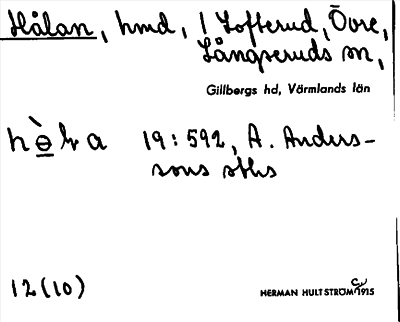 Hålan, hmd, 1 Lofterud, Övre,
Långseruds sn,
Gillbergs hd, Värmlands län
hɵ̀ḷa 19:592, A. Anders-
sons sths
12(10)
HERMAN HULTSTRÖM 1915